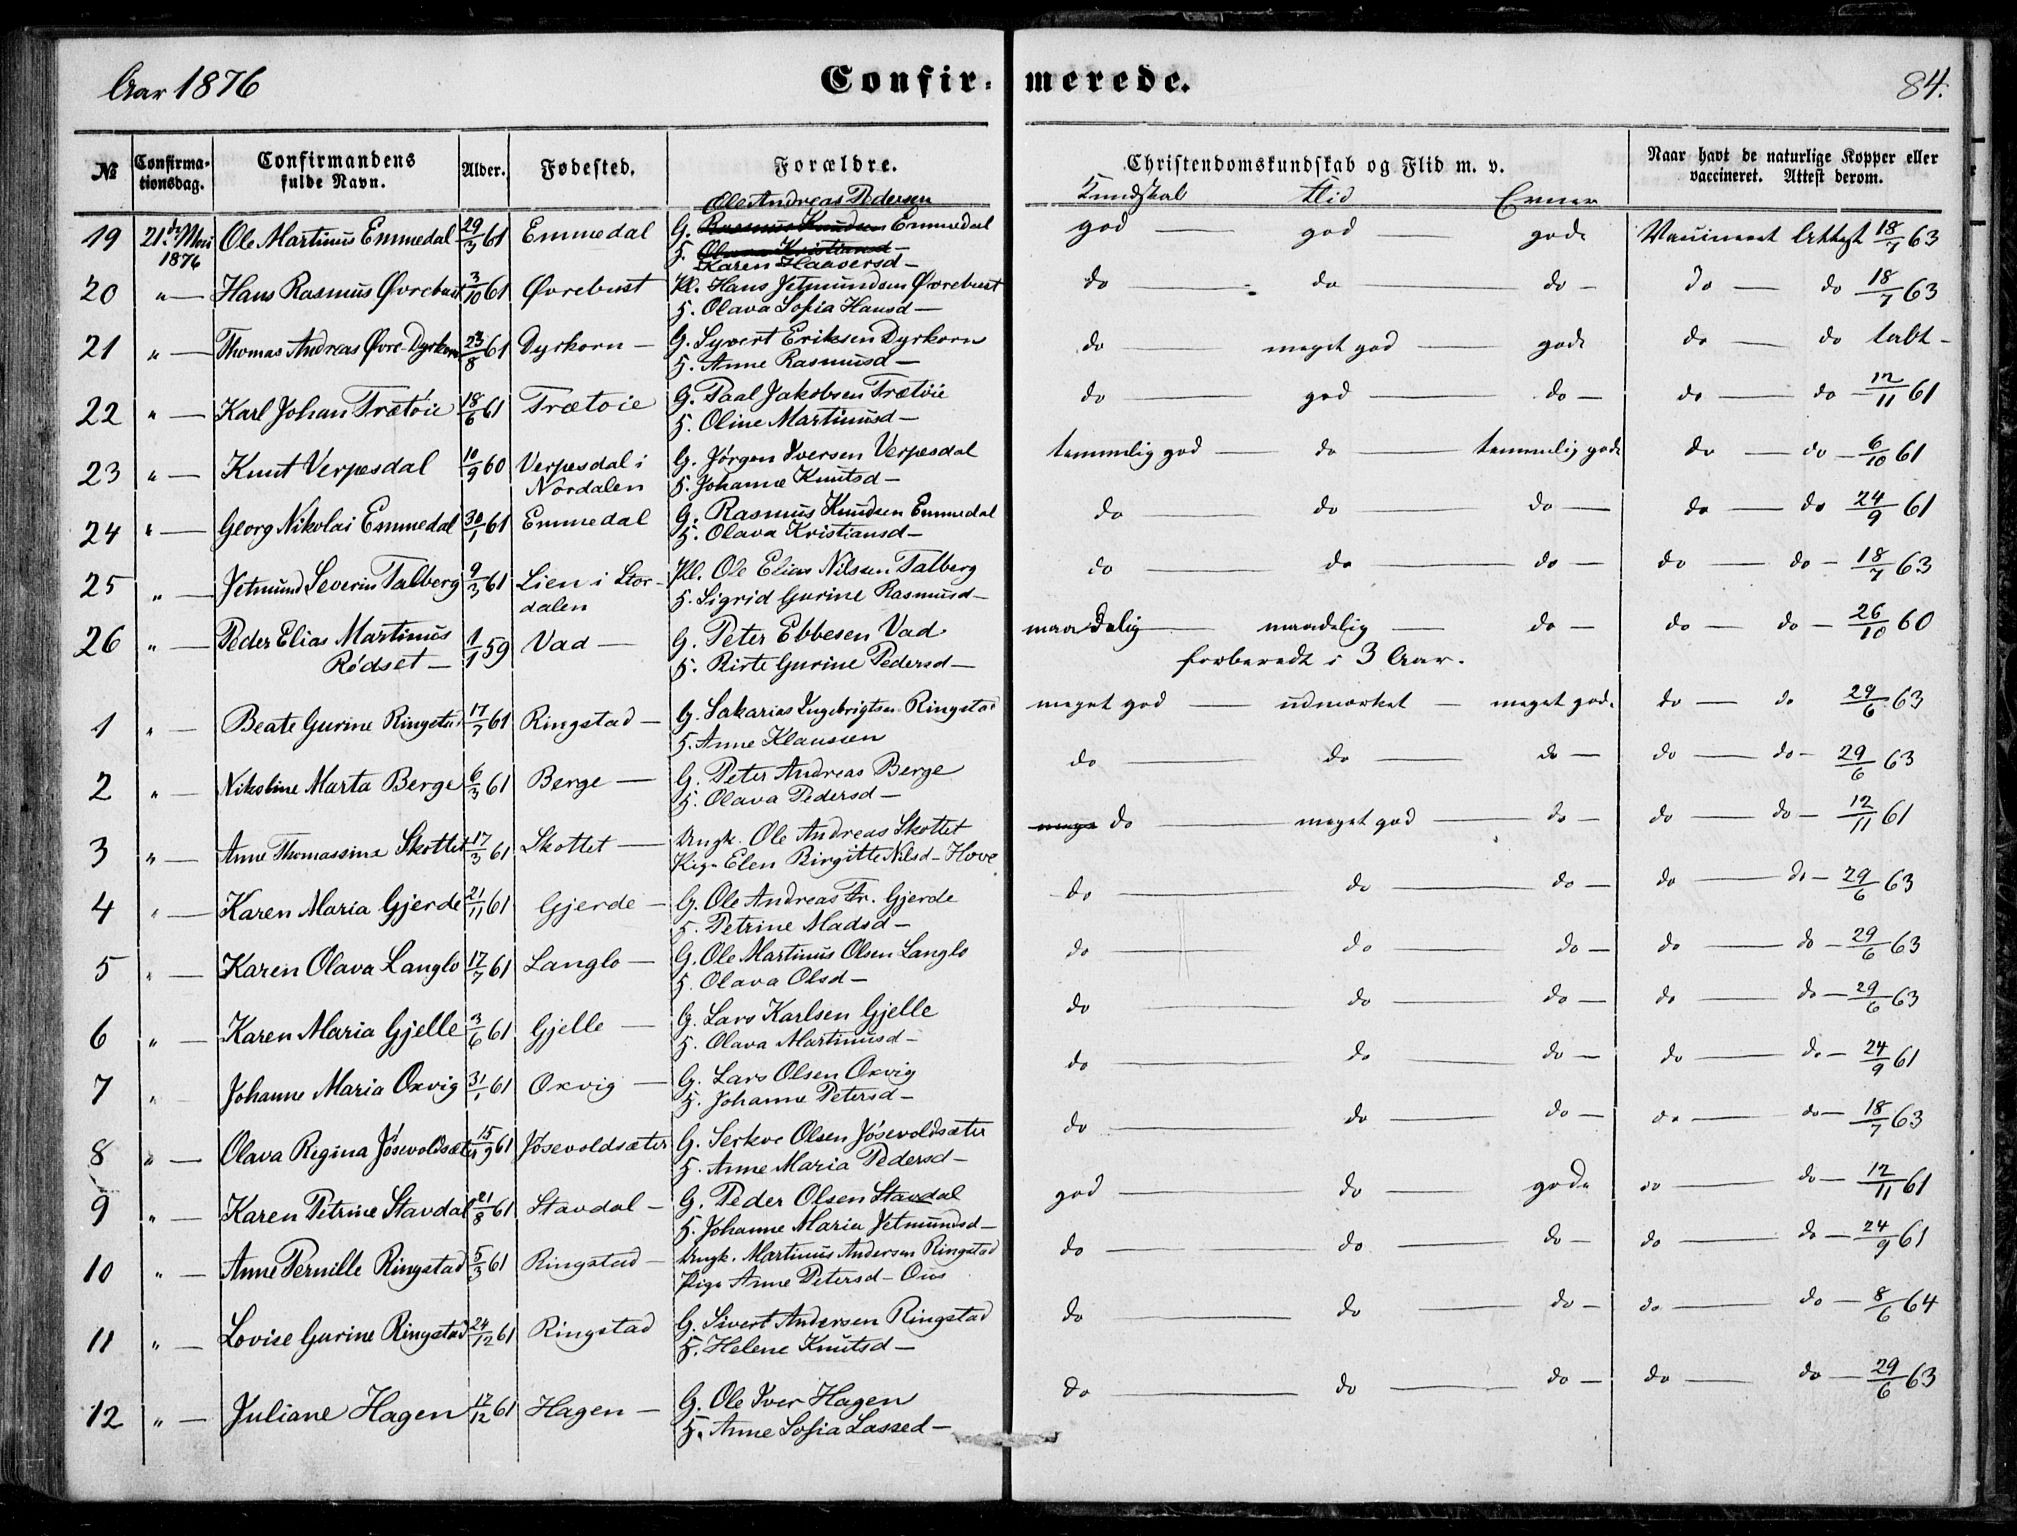 Aar 1876 Confirmerede. 84.
№ Confirmationsdag. Confirmandens fulde Navn. Alder. Fødested. Forældre. Christendomskundskab og Flid m. v. Naar havt de naturlige Kopper eller vaccineret. Attest derom.
Kundskab Flid Evner
Ole Andreas Pedersen
19 21de Mai 1876 Ole Martinus Emmedal 29/3 61 Emmedal G. Rasmus Knudsen Emmedal god — god — gode Vaccineret Attest 18/7 63
H. Olava Kristiansd —
Karen Haaversd —
20 " — Hans Rasmus Øvrebust 3/10 61 Øvrebust Pl. Hans Jetmundsen Øvrebust do — do — do — do — do 18/7 63
H. Olava Sofia Hansd —
21 " — Thomas Andreas Øvre-Dyrkorn 23/8 61 Dyrkorn — G. Syvert Eriksen Dyrkorn do meget god — gode do — do tabt —
H. Anne Rasmusd —
22 " — Karl Johan Trætøie 18/6 61 Trætoie G. Paal Jakobsen Trætøie do — god — do — do — do — 12/11 61
H. Oline Martinusd —
23 " — Knut Verpesdal 10/9 60 Verpesdal i Nordalen G. Jørgen Iversen Verpesdal temmelig god — do — temmelig gode do — do — 6/10 61
H. Johanne Knutsd —
24 " — Georg Nikolai Emmedal 30/1 61 Emmedal G. Rasmus Knudsen Emmedal do — do — do — do — do 24/9 61
H. Olava Kristiansd —
25 " — Jetmund Severin Talberg 9/3 61 Lien i Stordalen Pl. Ole Elias Nilsen Talberg do — do — do — do — do — 18/7 63
H. Sigrid Gurine Rasmusd —
26 " — Peder Elias Martinus Rødset — 1/1 59 Vad — G. Peter Ebbesen Vad maadelig — maadelig — do — do — do — 26/10 60
H. Birte Gurine Pedersd — forberedt i 3 Aar.
1 " — Beate Gurine Ringstad 17/7 61 Ringstad — G. Sakarias Ingebrigtsen Ringstad meget god — udmærket — meget gode do — do 29/6 63
H. Anne Klausen
2 " — Nikoline Marta Berge 6/3 61 Berge — G. Peter Andreas Berge do — do — do — do — do — 29/6 63
H. Olava Pedersd —
3 " — Anne Thomassine Skottet 17/3 61 Skottet — Ungk. Ole Andreas Skottet mege do — meget god — do — do — do — 12/11 61
Pige Elen Birgitte Nilsd — Hove
4 " — Karen Maria Gjerde 21/11 61 Gjerde — G. Ole Andreas Fr. Gjerde do — do — do — do — do — 29/6 63
H. Petrine Madsd —
5 " — Karen Olava Langlo 17/7 61 Langlo — G. Ole Martinus Olsen Langlo do — do — do — do — do — 29/6 63
H. Olava Olsd —
6 " — Karen Maria Gjelle 3/6 61 Gjelle — G. Lars Karlsen Gjelle do — do — do — do — do — 29/6 63
H. Olava Martinusd —
7 " — Johanne Maria Oxvig 31/1 61 Oxvig — G. Lars Olsen Oxvig do — do — do — do — do — 24/9 61
H. Johanne Petersd —
8 " — Olava Regina Jøsevoldsæt 15/9 61 Jøsevoldsæter G. Serkve Olsen Jøsevoldsæter do — do — do — do — do — 18/7 63
H. Anne Maria Pedersd —
9 " — Karen Petrine Stavdal 21/8 61 Stavdal — G. Peder Olsen Stavdal god — do — gode do — do — 12/11 61
H. Johanne Maria Jetmundsd —
10 " — Anne Pernille Ringstad 5/3 61 Ringstad — Ungk. Martinus Andersen Ringstad do — do — do — do — do — 24/9 61
Pige Anne Petersd — Ous
11 " — Lovise Gurine Ringstad 24/12 61 Ringstad G. Sivert Andersen Ringstad do — do — do — do — do — 8/6 64
H. Helene Knutsd —
12 " — Juliane Hagen 17/12 61 Hagen — G. Ole Iver Hagen do — do — do — do — do — 29/6 63
H. Anne Sofia Lassed —